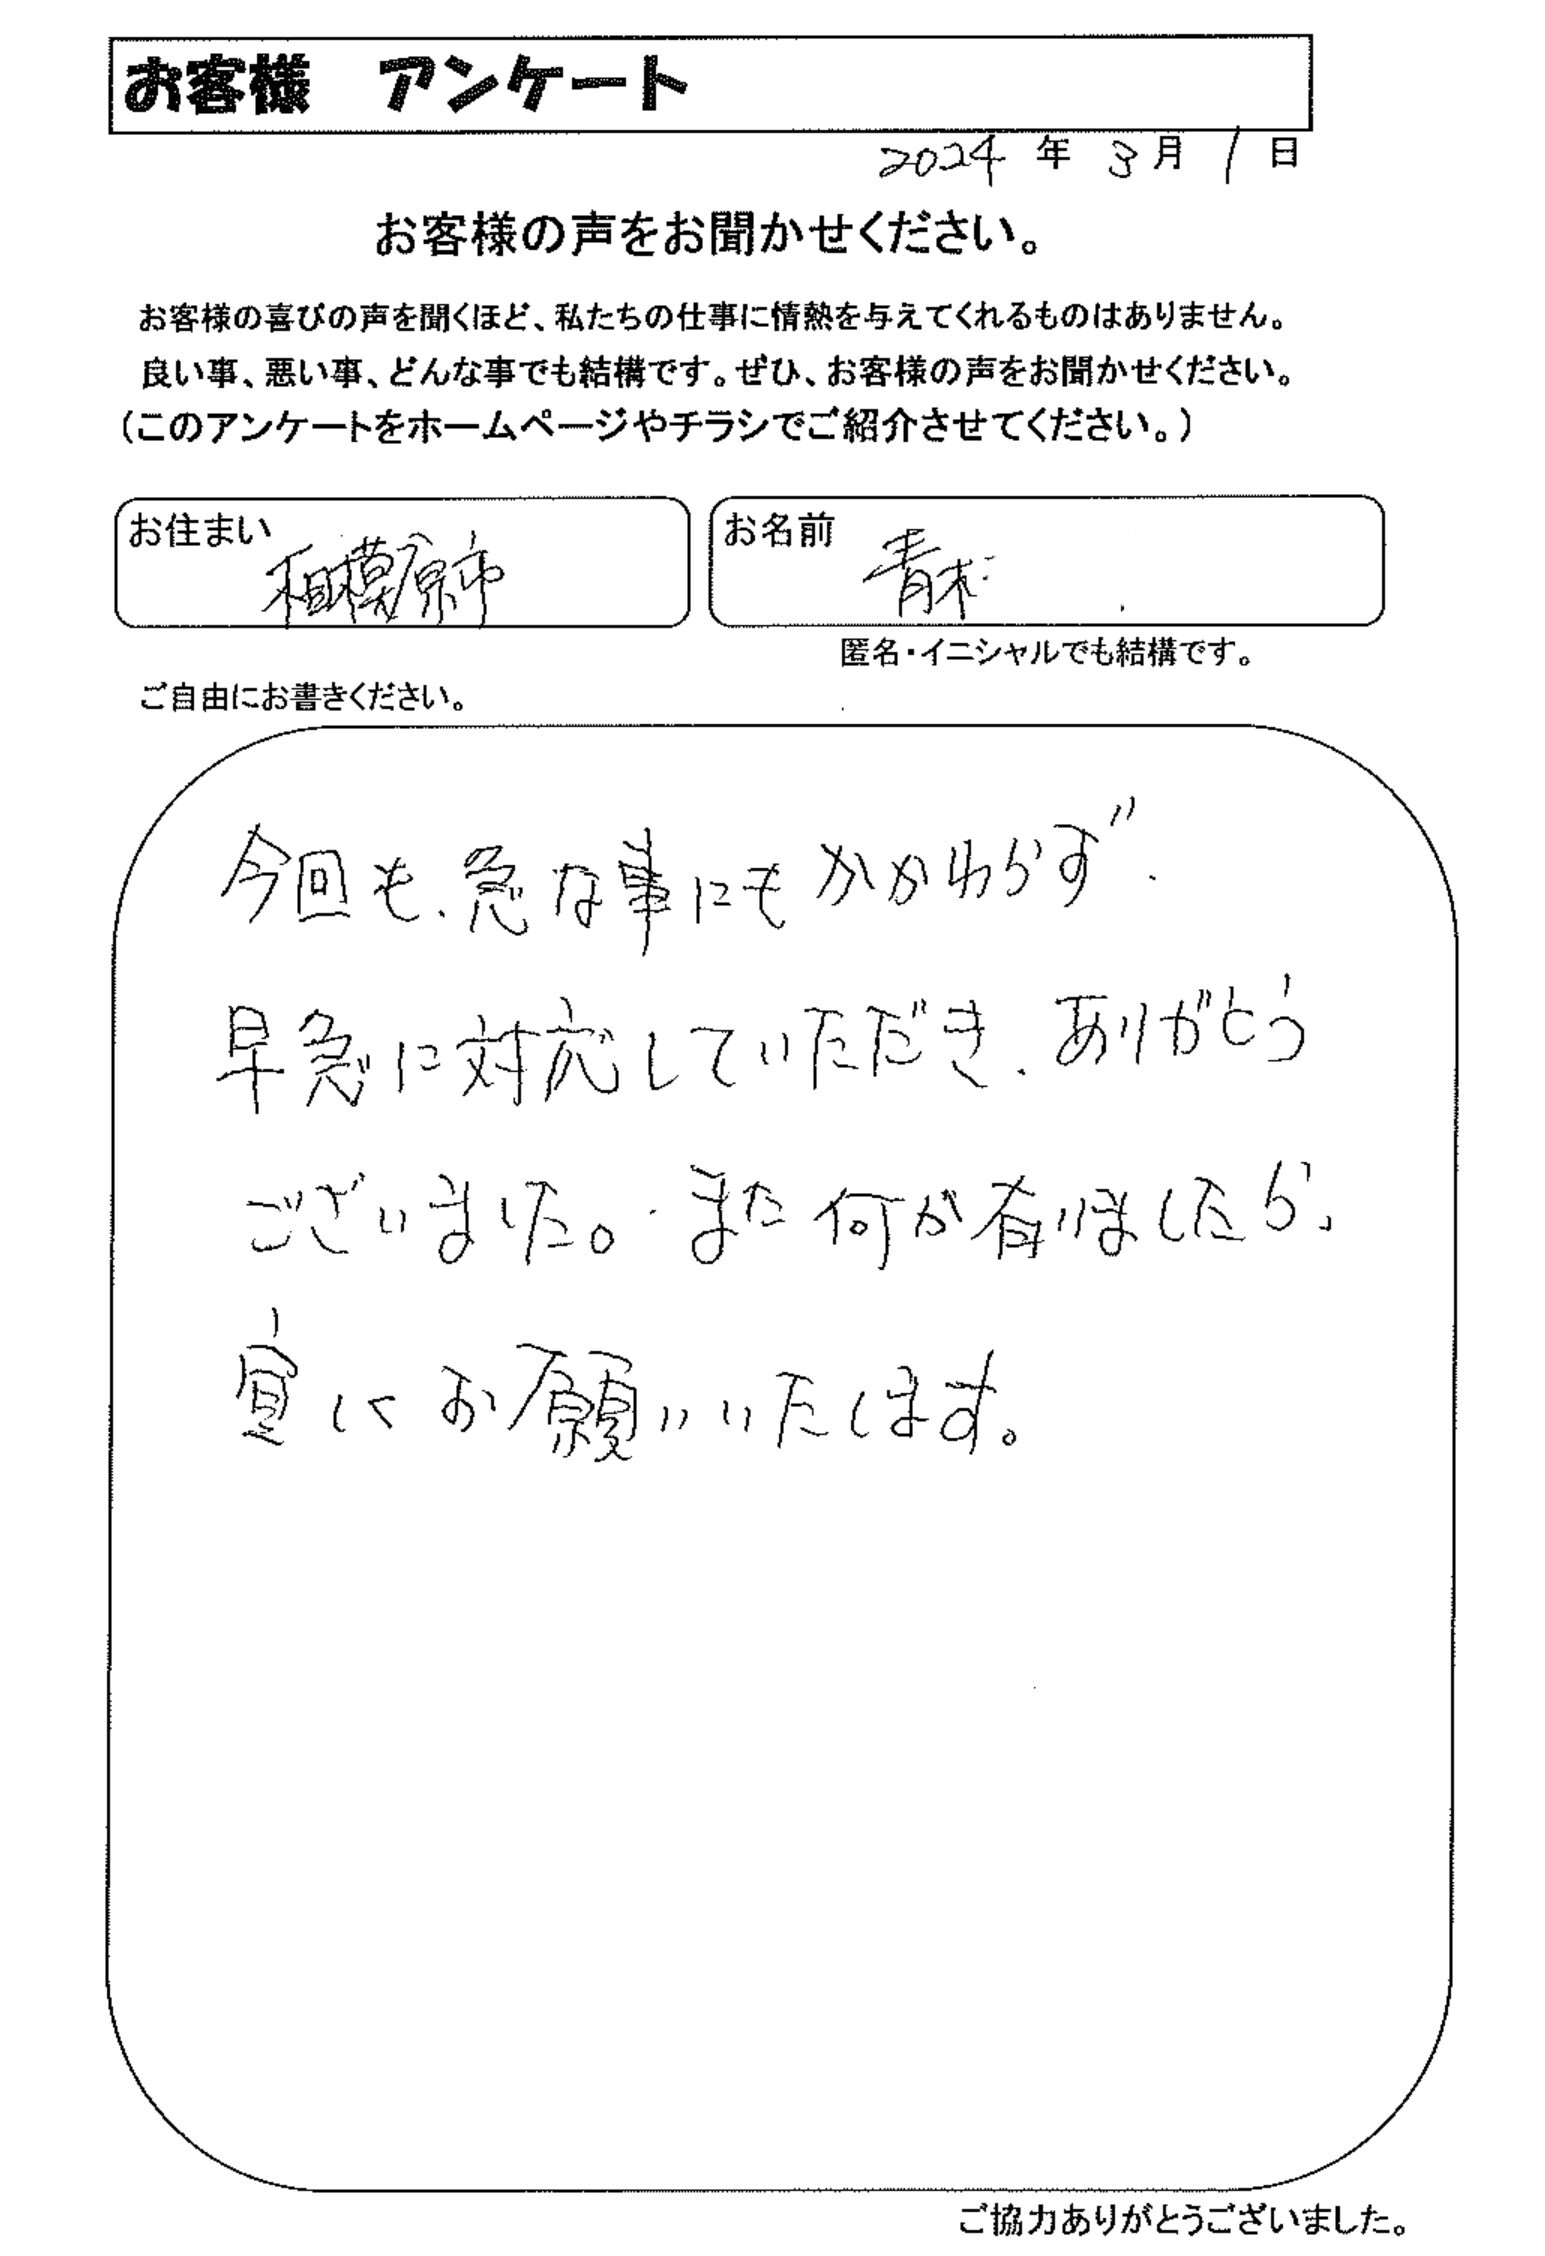 お客様 アンケート
2024年 3月 1日
お客様の声をお聞かせください。
お客様の喜びの声を聞くほど、私たちの仕事に情熱を与えてくれるものはありません。
良い事、悪い事、どんな事でも結構です。ぜひ、お客様の声をお聞かせください。
(このアンケートをホームページやチラシでご紹介させてください。)
お住まい 相模原市
お名前 青木
匿名・イニシャルでも結構です。
ご自由にお書きください。
今回も、急な事にもかかわらず、
早急に対応していただき、ありがとう
ございました。また何か有りましたら、
宜しくお願いいたします。
ご協力ありがとうございました。